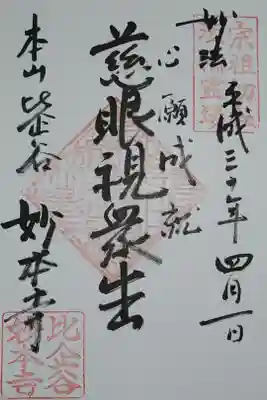 妙法
平成三十年四月一日
心願成就
慈眼視衆生
本山比企谷
妙本寺
比企谷
妙本寺